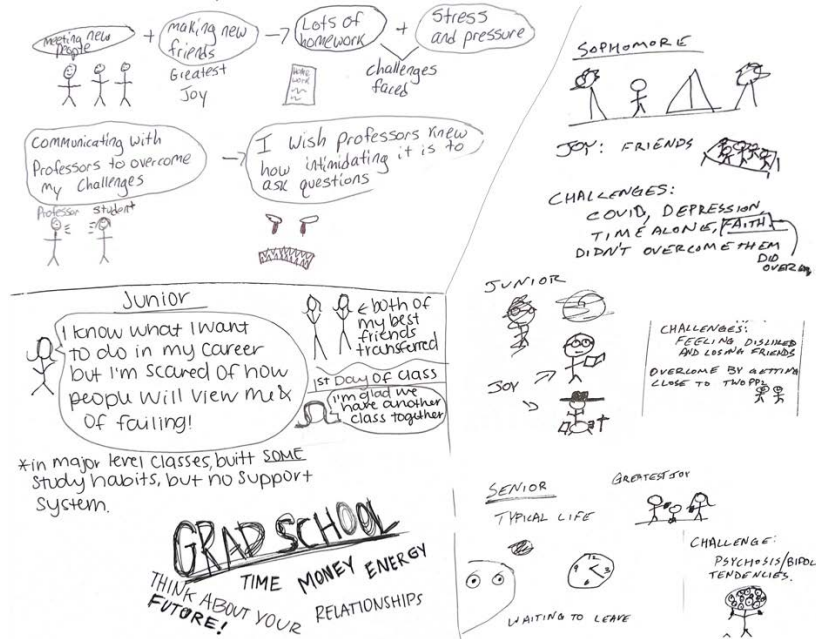 Meeting new
people
+
making new
friends
→
Lots of
homework
+
Stress
and pressure
Greatest
Joy
Home
work
challenges
faced
Communicating with
Professors to overcome
my Challenges
→
I wish professors knew
how intimidating it is to
ask questions
Professor
Student
Junior
I know what I want
to do in my career
but I'm scared of how
people will view me &
of failing!
← both of
my best
friends
transferred
1st Day of class
I'm glad we
have another
class together
*in major level classes, built SOME
study habits, but no support
system.
GRAD SCHOOL
TIME MONEY ENERGY
THINK ABOUT YOUR
FUTURE!
RELATIONSHIPS
SOPHOMORE
JOY: FRIENDS
CHALLENGES:
COVID, DEPRESSION,
TIME ALONE, FAITH
DIDN'T OVERCOME THEM
DID
JUNIOR
JOY
CHALLENGES:
FEELING DISLIKED
AND LOSING FRIENDS
OVERCOME BY GETTING
CLOSE TO TWO PPL
SENIOR
TYPICAL LIFE
12
9
3
6
WAITING TO LEAVE
GREATEST JOY
CHALLENGE:
PSYCHOSIS/BIPOL
TENDENCIES.